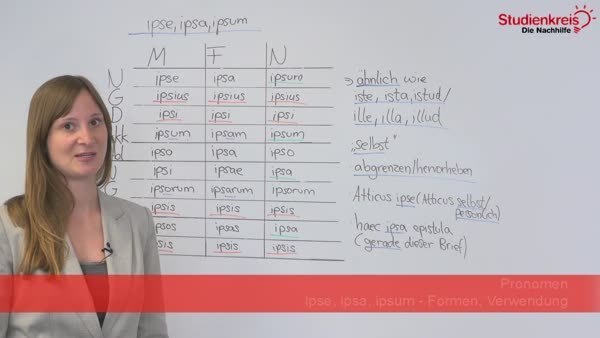 Studienkreis
Die Nachhilfe
ipse, ipsa, ipsum
M F N
N ipse ipsa ipsum
G ipsius ipsius ipsius
D ipsi ipsi ipsi
ipsum ipsam ipsum
ipso ipsa ipso
ipsi ipsae ipsa
G ipsorum ipsarum ipsorum
ipsis ipsis ipsis
ipsos ipsas ipsa
ipsis ipsis ipsis
→ ähnlich wie
iste, ista, istud/
ille, illa, illud
„selbst“
abgrenzen/hervorheben
Atticus ipse (Atticus selbst/
persönlich)
haec ipsa epistula
(gerade dieser Brief)
Pronomen
Ipse, ipsa, ipsum - Formen, Verwendung